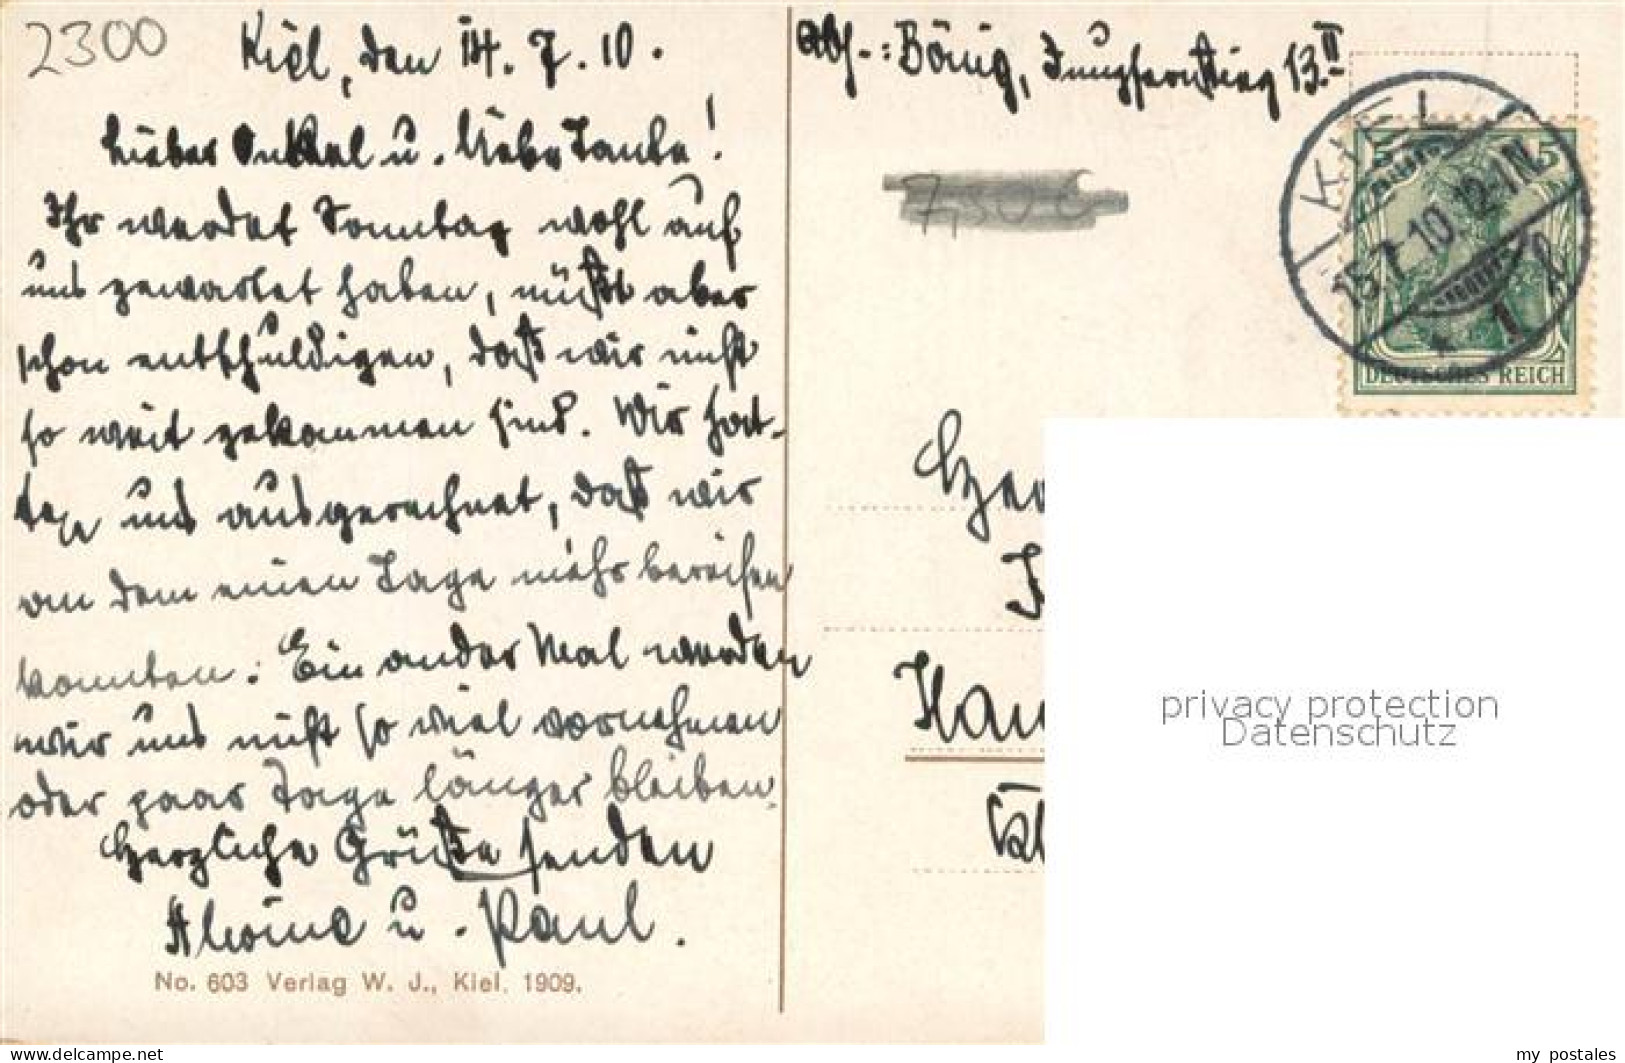 2300
Kiel, den 14. 7. 10.
Lieber Onkel u. liebe Tante!
Ihr werdet Sonntag wohl auf
uns gewartet haben, müßt aber
schon entschuldigen, daß wir nicht
so weit gekommen sind. Wir hat-
ten uns ausgerechnet, daß wir
an dem einen Tage mehr bereisen
konnten. Ein ander Mal werden
wir uns nicht so viel vornehmen
oder paar Tage länger bleiben.
Herzliche Grüße senden
Alwine u. Paul.
No. 603 Verlag W. J., Kiel. 1909.
Abs.: Bönig, Jungfernstieg 13.II
7,50 €
KIEL
15.7.10. 12-1N.
* 1
5
DEUTSCHES REICH
privacy protection
Datenschutz
www.delcampe.net
my_postales